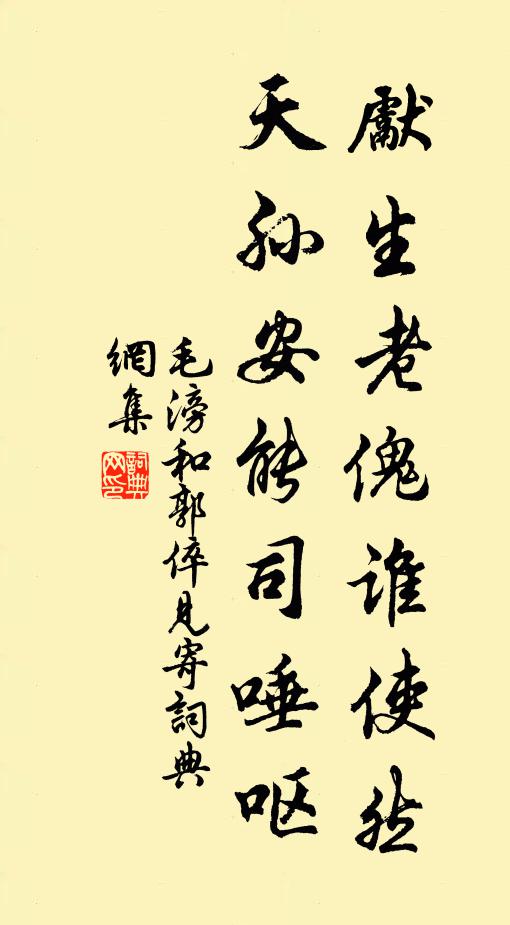 獻生老傀谁使然
天孙安能司唾呕
毛滂和郭倅見寄詞典
網集
詞典网印